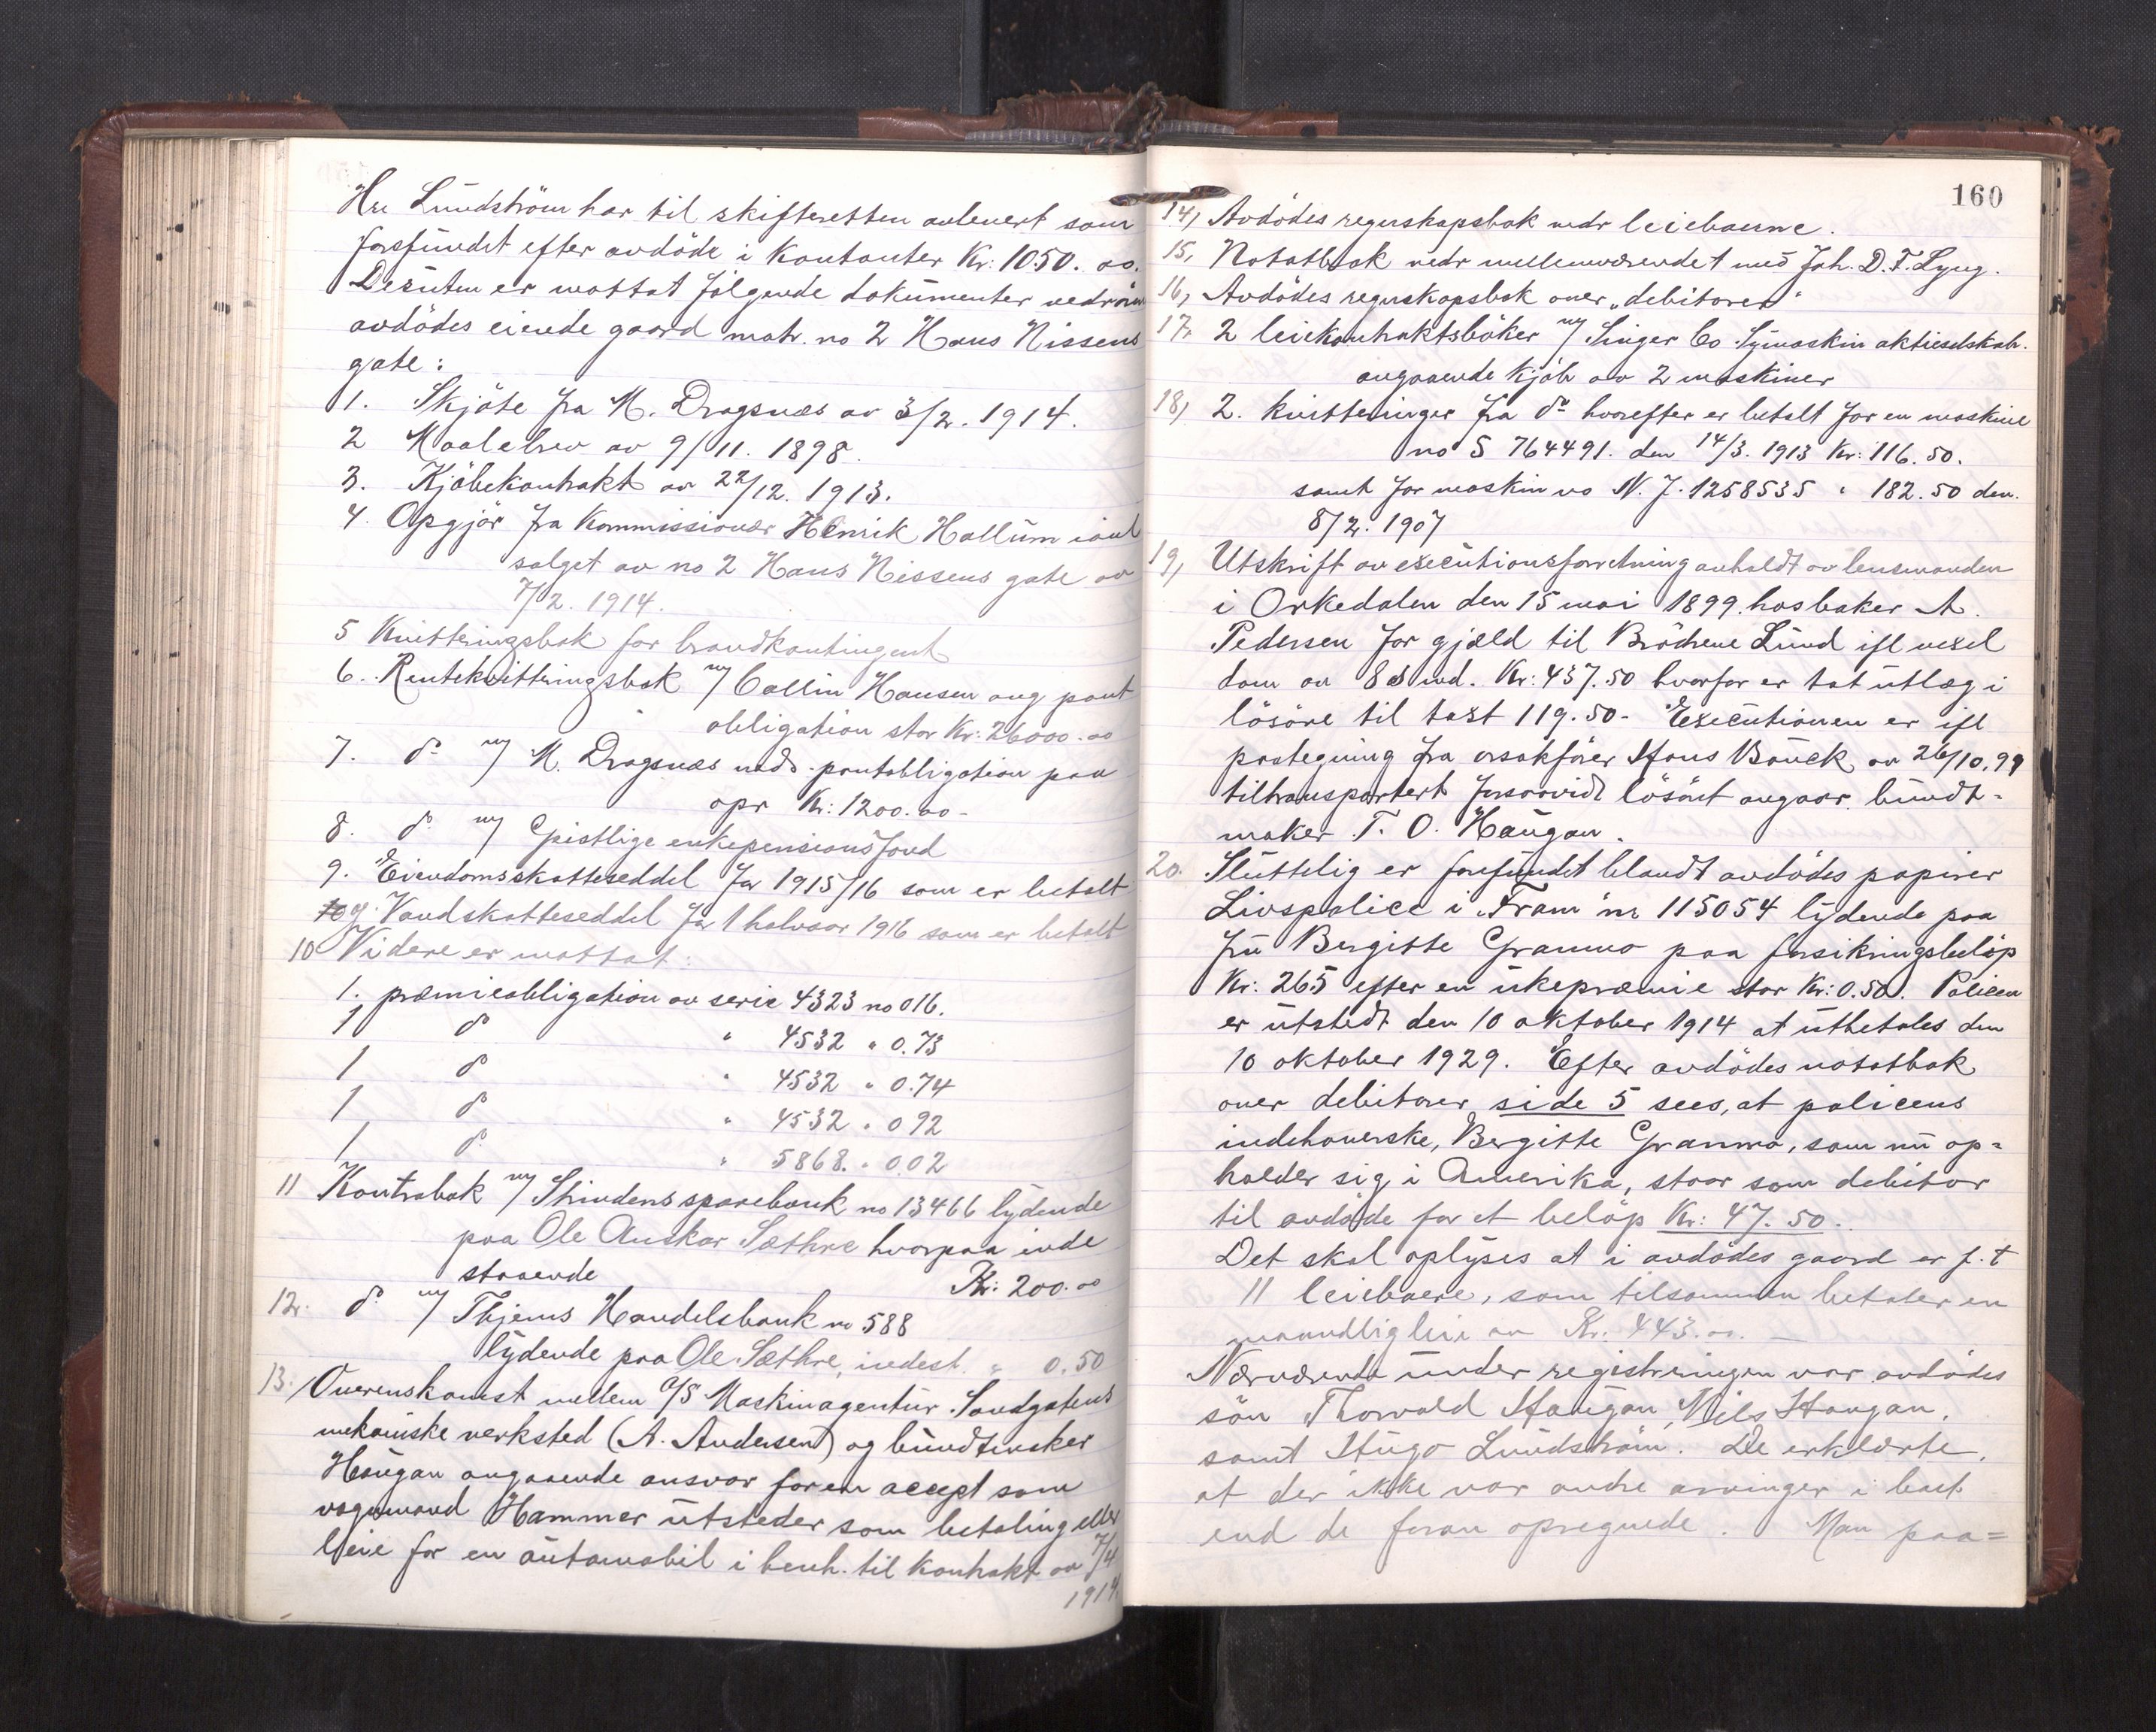 Hr Lundström har til skifteretten avlevert som
forefundet efter avdöde i Kontanter Kr: 1050. oo.
Desuten er mottat fölgende dokumenter vedrör
avdödes eiende gaard matr. no 2 Hans Nissens
gate:
1. Skjöte fra M. Dragsnæs av 3/2. 1914.
2 Maalebrev av 9/11. 1898.
3. Kjöbekontrakt av 22/12. 1913.
4. Opgjör fra Kommissionær Henrik Hallum
salget av no 2 Hans Nissens gate av
7/2. 1914.
5 Kvitteringsbok for brandkontingent
6. Rentekvitteringsbok m/ Collin Hansen ang pant
obligation stor Kr: 26000.oo
7. do m/ M. Dragsnæs vedr. pantobligation paa
opr Kr: 1200.oo-
8. do m/ Gjistlige enkepensionsfond
9. Eiendomsskatteseddel for 1915/16 som er betalt
og Vandskatteseddel for 1 halvaar 1916 som er betalt
10 Videre er mottat:
1. præmieobligation av serie 4323 no 016.
1 do " 4532 " 0.73
1 do " 4532 " 0.74
1 do " 4532 " 0 92
1 do " 5868. " 0.02
11 Kontrabok m/ Strindens sparebank no 13466 lydende
paa Ole Anskar Sæthre hvorpaa inde
staaende Kr: 200.oo
12. do m/ Thjems Handelsbank no 588
lydende paa Ole Sæthre, indest. " 0.50
13. Overenskomst mellem A/S Maskinagentur Sandgatens
mekaniske verksted (A. Andersen) og bundtmaker
Haugan angaaende ansvar for en accept som
vognmand Hammer utsteder som betaling eller
leie for en automobil i henh. til kontrakt av 7/4
1914.
160
14, Avdödes regnskapsbok vedr leieboerne.
15, Notatbok vedr mellemværendet med Joh. D. F. Lyng.
16, Avdödes regnskapsbok over „debitorer“
17. 2 leiekontraktsböker m/ Singer Co Symaskin aktieselskab.
angaaende Kjöb av 2 maskiner
18, 2. kvitteringer fra do hvorefter er betalt for en maskine
no S 764491. den 14/3. 1913 Kr: 116.50.
samt for maskin no N. J. 1258535 " 182.50 den.
8/2. 1907
19, Utskrift av executionsforretning avholdt av lensmanden
i Orkedalen den 15 mai 1899 hos baker A.
Pedersen for gjæld til Brödrene Lund ifl vexel
dom av 8 s md. Kr: 437.50 hvorfor er tat utlæg i
lösöre til taxt 119.50- Executionen er ifl
paategning fra orsakförer Hans Bauck av 26/10.99
tiltransportert forsaavidt lösöret angaar bundt-
maker T. O. Haugan.
20. Sluttelig er forefundet blandt avdödes papirer
Livspolice i „Fram“ nr 115054 lydende paa
fru Bergitte Granmo paa forsikringsbelöp
Kr: 265 efter en ukepræmie stor Kr: 0.50. Policen
er utstedt den 10 oktober 1914 at utbetales den
10 oktober 1929. Efter avdödes notatbok
over debitorer side 5 sees, at policens
indehaverske, Bergitte Granmo, som nu op=
holder sig i Amerika, staar som debitor
til avdöde for et belöp Kr: 47.50.
Det skal oplyses at i avdödes gaard er f. t
11 leieboere, som tilsammen betaler en
maandlig leie av Kr. 443.oo.
Nærværende under registreringen var avdödes
sön Thorvald Haugan, Nils Haugan,
samt Hugo Lundström. De erklærte,
at der ikke var andre arvinger i boet
end de foran opregnede. Man paa=